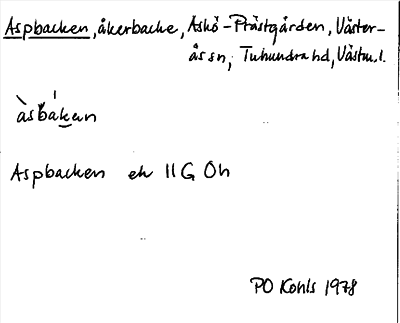 Aspbacken, åkerbacke, Askö-Prästgården, Väster-
ås sn, Tuhundra hd, Västm. l.
àsbákan
Aspbacken ek 11G Öh
PO Kohls 1978